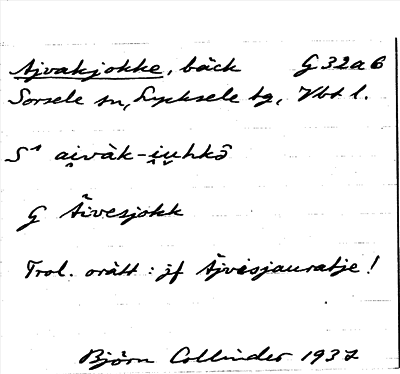 Ajvakjokke, bäck G 32 a b
Sorsele sn, Lycksele tg, Vbt l.
S¹ ai̯vàk-i̯u̯hkō
G Äivesjokk
Trol. orätt: jf Äjvisjauratje!
Björn Collinder 1937